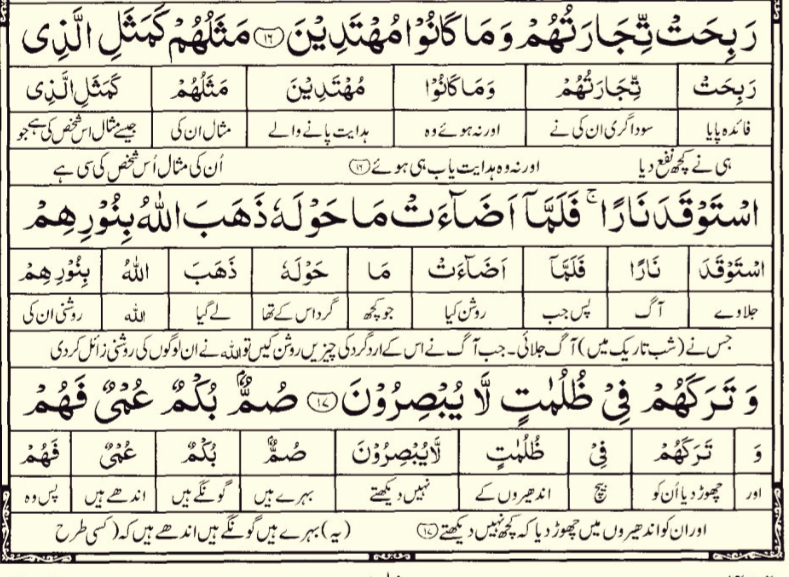 رَبِحَتْ تِّجَارَتُهُمْ وَمَا كَانُوْا مُهْتَدِيْنَ ﴿۱۶﴾ مَثَلُهُمْ كَمَثَلِ الَّذِى
رَبِحَتْ تِّجَارَتُهُمْ وَمَا كَانُوْا مُهْتَدِيْنَ مَثَلُهُمْ كَمَثَلِ الَّذِى
فائدہ پایا سوداگری ان کی نے اور نہ ہوئے وہ ہدایت پانے والے مثال ان کی جیسے مثال اس شخص کی ہے جو
ہی نے کچھ نفع دیا اور نہ وہ ہدایت یاب ہی ہوئے ﴿۱۶﴾ اُن کی مثال اُس شخص کی سی ہے
اسْتَوْقَدَ نَارًا ۚ فَلَمَّآ اَضَآءَتْ مَا حَوْلَهٗ ذَهَبَ اللّٰهُ بِنُوْرِهِمْ
اسْتَوْقَدَ نَارًا فَلَمَّآ اَضَآءَتْ مَا حَوْلَهٗ ذَهَبَ اللّٰهُ بِنُوْرِهِمْ
جلاوے آگ پس جب روشن کیا جو کچھ گرد اس کے تھا لے گیا اللہ روشنی ان کی
جس نے (شب تاریک میں) آگ جلائی۔ جب آگ نے اس کے اردگرد کی چیزیں روشن کیں تو اللہ نے ان لوگوں کی روشنی زائل کر دی
وَ تَرَكَهُمْ فِىْ ظُلُمٰتٍ لَّا يُبْصِرُوْنَ ﴿۱۷﴾ صُمٌّۢ بُكْمٌ عُمْىٌ فَهُمْ
وَ تَرَكَهُمْ فِىْ ظُلُمٰتٍ لَّا يُبْصِرُوْنَ صُمٌّۢ بُكْمٌ عُمْىٌ فَهُمْ
اور چھوڑ دیا اُن کو بیچ اندھیروں کے نہیں دیکھتے بہرے ہیں گونگے ہیں اندھے ہیں پس وہ
اور ان کو اندھیروں میں چھوڑ دیا کہ کچھ نہیں دیکھتے ﴿۱۷﴾ (یہ) بہرے ہیں گونگے ہیں اندھے ہیں کہ (کسی طرح